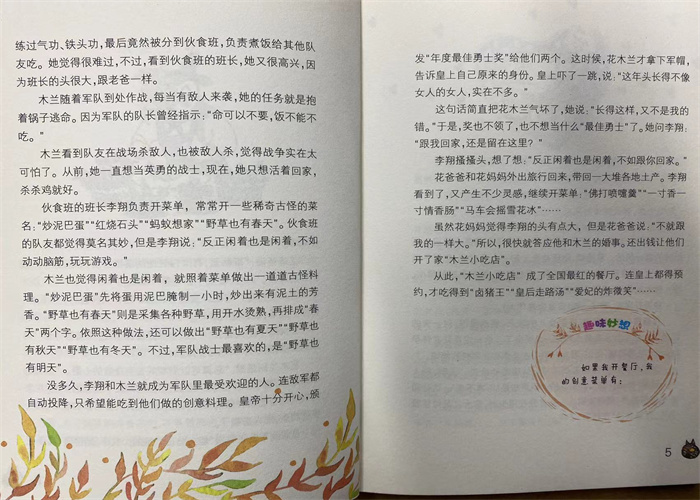 练过气功、铁头功，最后竟然被分到伙食班，负责煮饭给其他队
友吃。她觉得很难过，不过，看到伙食班的班长，她又很高兴，因
为班长的头很大，跟老爸一样。
木兰随着军队到处作战，每当有敌人来袭，她的任务就是抱
着锅子逃命。因为军队的队长曾经指示：“命可以不要，饭不能不
吃。”
木兰看到队友在战场杀敌人，也被敌人杀，觉得战争实在太
可怕了。从前，她一直想当英勇的战士，现在，她只想活着回家，
杀杀鸡就好。
伙食班的班长李翔负责开菜单，常常开一些稀奇古怪的菜
名：“炒泥巴蛋”“红烧石头”“蚂蚁想家”“野草也有春天”。伙食班
的队友都觉得莫名其妙，但是李翔说：“反正闲着也是闲着，不如
动动脑筋，玩玩游戏。”
木兰也觉得闲着也是闲着，就照着菜单做出一道道古怪料
理。“炒泥巴蛋”先将蛋用泥巴腌制一小时，炒出来有泥土的芳
香。“野草也有春天”则是采集各种野草，用开水烫熟，再排成“春
天”两个字。依照这种做法，还可以做出“野草也有夏天”“野草也
有秋天”“野草也有冬天”。不过，军队战士最喜欢的，是“野草也
有明天”。
没多久，李翔和木兰就成为军队里最受欢迎的人。连敌军都
自动投降，只希望能吃到他们做的创意料理。皇帝十分开心，颁
发“年度最佳勇士奖”给他们两个。这时候，花木兰才拿下军帽，
告诉皇上自己原来的身份。皇上吓了一跳，说：“这年头长得不像
女人的女人，实在不多。”
这句话简直把花木兰气坏了，她说：“长得这样，又不是我的
错。”于是，奖也不领了，也不想当什么“最佳勇士”了。她问李翔：
“跟我回家，还是留在这里？”
李翔搔搔头，想了想：“反正闲着也是闲着，不如跟你回家。”
花爸爸和花妈妈外出旅行回来，带回一大堆各地土产。李翔
看到了，又产生不少灵感，继续开菜单：“佛打喷嚏羹”“一寸香一
寸情香肠”“马车会摇雪花冰”……
虽然花妈妈觉得李翔的头有点大，但是花爸爸说：“不就跟
我的一样大。”所以，很快就答应他和木兰的婚事。还出钱让他们
开了家“木兰小吃店”。
从此，“木兰小吃店”成了全国最红的餐厅。连皇上都得预
约，才吃得到“卤猪王”“皇后走路汤”“爱妃的炸微笑”……
趣味妙想
如果我开餐厅，我
的创意菜单有：
5